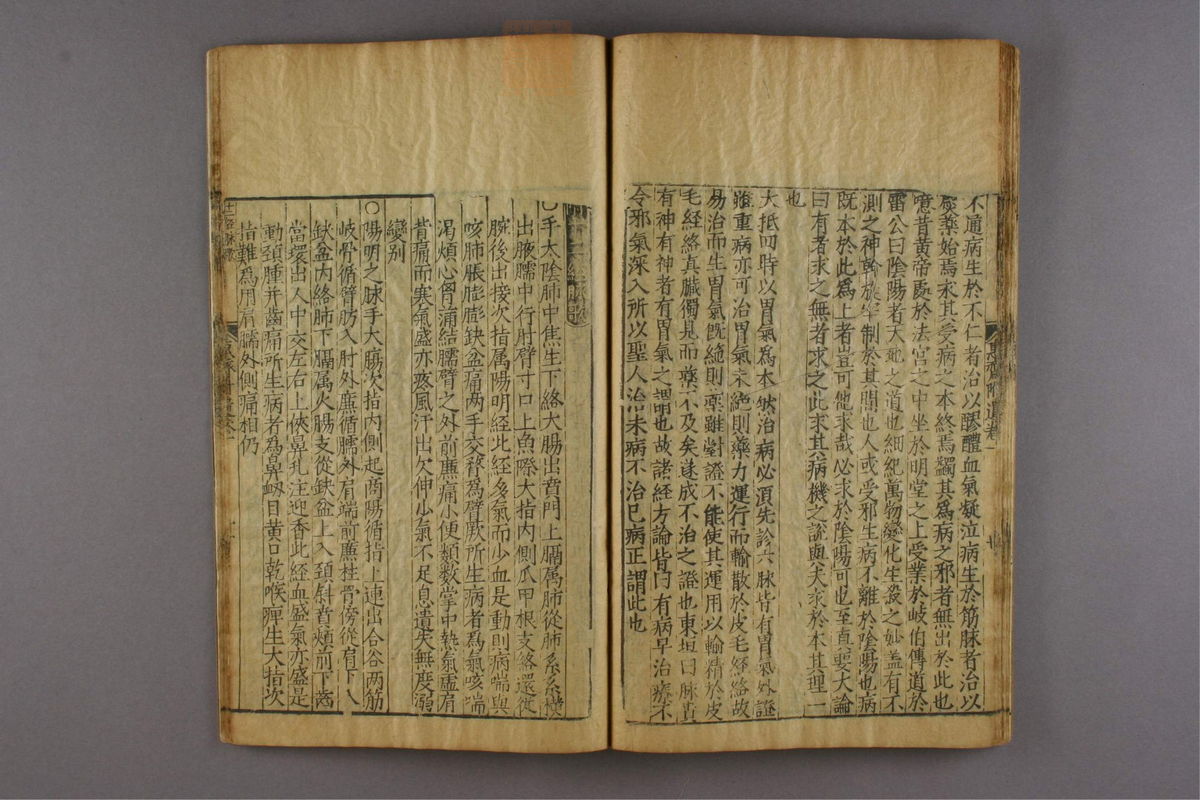 不通病生於不仁者治以醪醴血氣凝泣病生於筋脉者治以
熨藥始焉求其受病之本終焉蠲其爲病之邪者無出於此也
噫昔黄帝處於法宫之中坐於明堂之上受業於岐伯傳道於
雷公曰陰陽者天地之道也細紀萬物變化生殺之妙盖有不
測之神斡旋宰制於其間也人或受邪生病不離於陰陽也病
既本於此爲上者豈可他求哉必求於陰陽可也至真要大論
曰有者求之無者求之此求其病機之說與夫求於本其理一
也
大抵四時以胃氣爲本然治病必須先診六脉皆有胃氣外證
雖重病亦可治胃氣未絶則藥力運行而輸散於皮毛經絡故
易治而生胃氣既絶則藥雖對證不能使其運用以輸精於皮
毛經絡真臟獨見而藥不及矣遂成不治之證也東垣曰脉貴
有神有神者有胃氣之謂也故諸經方論皆曰有病早治療不
令邪氣深入所以聖人治未病不治已病正謂此也
十二經脉
〇手太陰肺中焦生下絡大腸出賁門上膈属肺從肺系系横
出腋臑中行肘臂寸口上魚際大指内側爪甲根支絡還從
腕後出接次指属陽明經此經多氣而少血是動則病喘與
咳肺脹膨膨缺盆痛兩手交瞀爲臂厥所生病者爲氣咳喘
渴煩心胷滿結臑臂之外前廉痛小便頻數掌中熱氣虛肩
背痛而寒氣盛亦疼風汗出欠伸少氣不足息遺失無度溺
變别
〇陽明之脉手大腸次指内側起商陽循指上連出合谷兩筋
岐骨循臂肪入肘外廉循臑外肩端前廉柱骨傍從肩下入
缺盆内絡肺下膈属大腸支從缺盆上入頚斜賁頰前下齒
當環出人中交左右上俠鼻孔注迎香此經血盛氣亦盛是
動頚腫并齒痛所生病者為鼻衂目黄口乾喉痺生大指次
指難爲用肩臑外側痛相仍